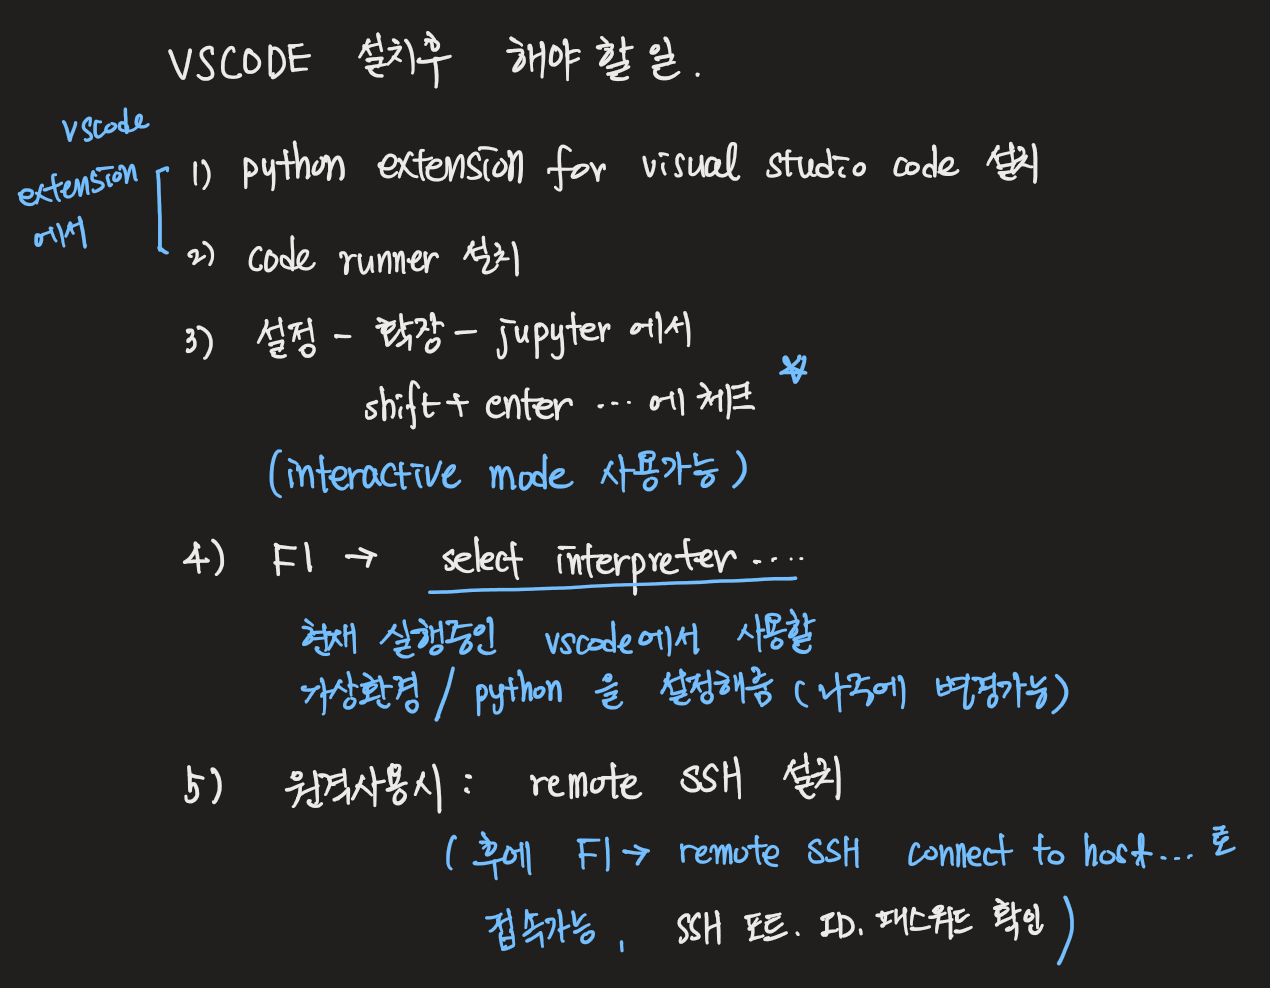 VSCODE 설치후 해야 할 일.
vscode
extension
에서
1) python extension for visual studio code 설치
2) code runner 설치
3) 설정 - 확장 - jupyter 에서
shift + enter ... 에 체크
(interactive mode 사용가능)
4) F1 → select interpreter ....
현재 실행중인 vscode에서 사용할
가상환경 / python 을 설정해줌 (나중에 변경가능)
5) 원격사용시 : remote SSH 설치
(후에 F1 → remote SSH connect to host... 로
접속가능, SSH 포트. ID. 패스워드 확인)